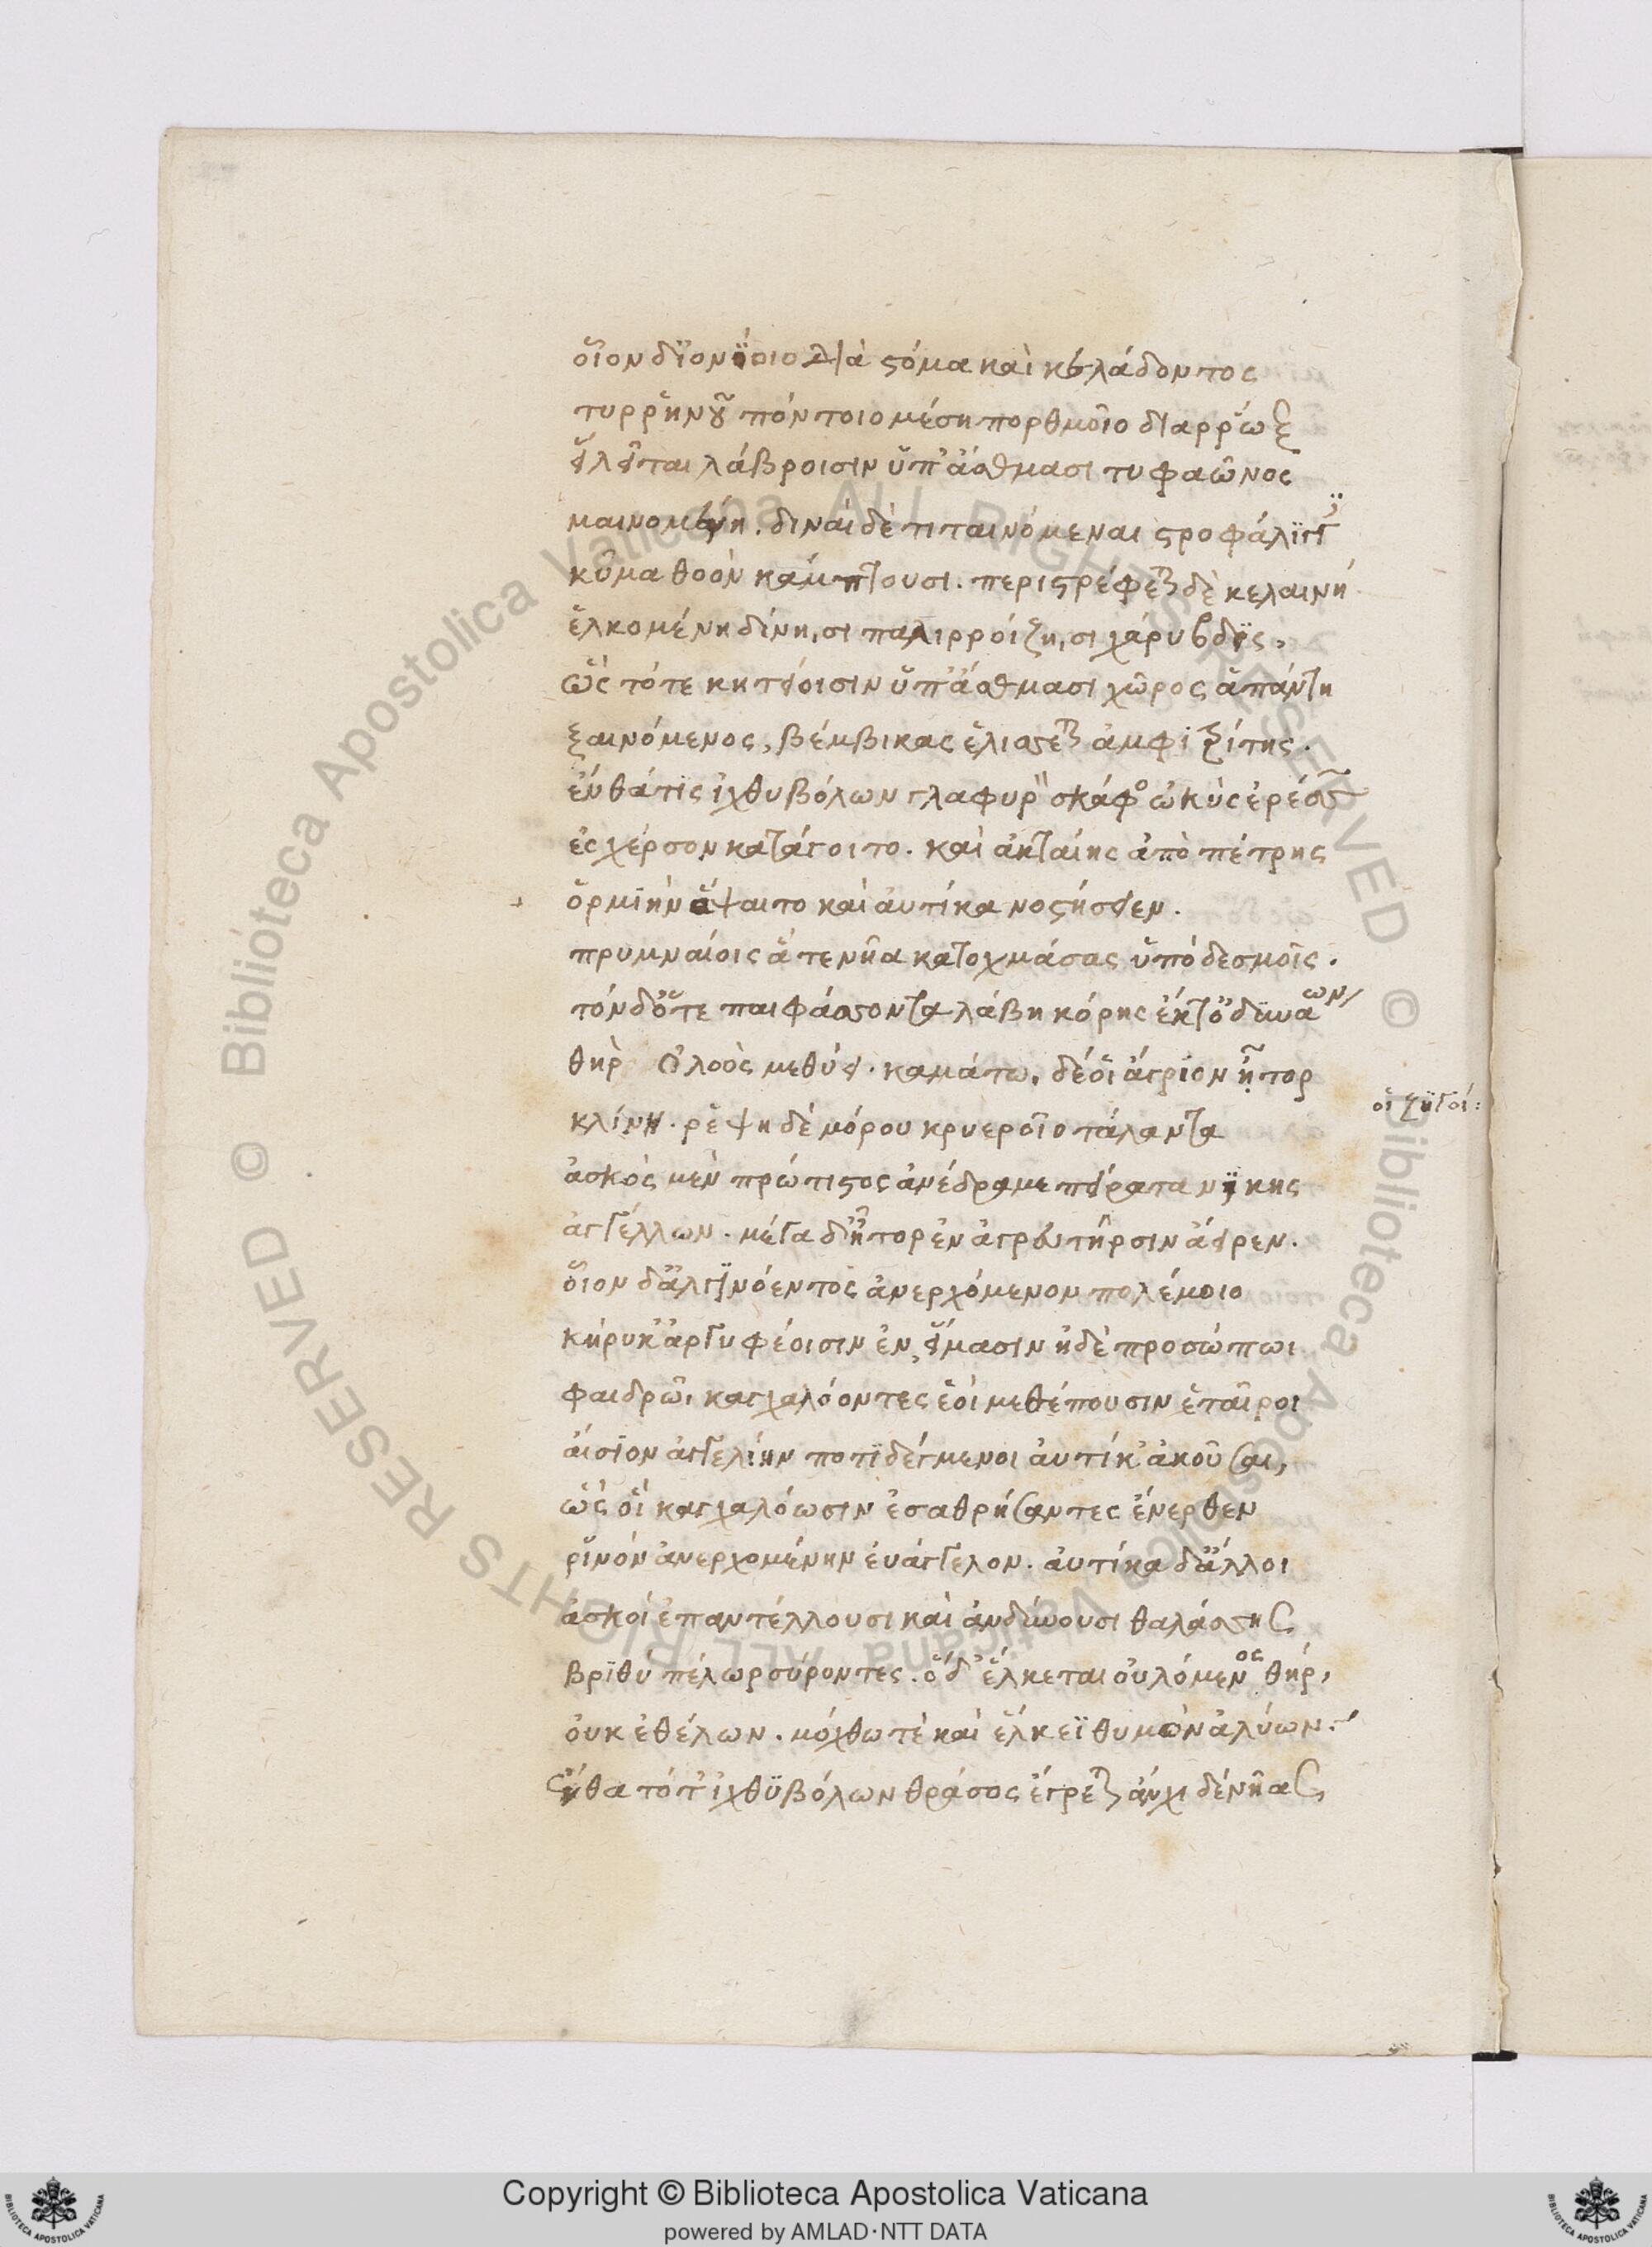 οἷον δ' ἰονίοιο διὰ στόμα καὶ κελάδοντος
τυρρηνοῦ πόντοιο μέση πορθμοῖο διαρρὼξ
εἱλεῖται λάβροισιν ὑπ' ἄσθμασι τυφαῶνος
μαινομένη. διναὶ δὲ τιταινόμεναι στροφάλιγγι
κῦμα θοὸν κάμπτουσι. περιστρέφεται δὲ κελαινὴ
ἑλκομένη δίνησι παλιρροίζησι χάρυβδις,
ὣς τότε κητείοισιν ὑπ' ἄσθμασι χῶρος ἁπάντη
ξαινόμενος, βέμβικας ἑλίσσεται ἀμφιτρίτης.
ἔνθά τις ἰχθυβόλων γλαφυρὸν σκάφος ὠκὺς ἐρέσσων
ἐς χέρσον κατάγοιτο. καὶ ἀκταίης ἀπὸ πέτρης
ὁρμιὴν ἅψαιτο καὶ αὐτίκα νοστήσειεν.
πρυμναίοις ἅτε νῆα κατοχμάσας ὑπὸ δεσμοῖς.
τὸν δ' ὅτε παιφάσσοντα λάβη κόρης ἐκτ ὀδυνάων
θὴρ ὀλοὸς μεθύει. καμάτω, δέ οἱ ἄγριον ἦτορ
κλίνη. ρέψη δὲ μόρου κρυεροῖο τάλαντα
οἱ ζυγοί:
ἀσκὸς μὲν πρώτιστος ἀνέδραμε πείρατα νίκης
ἀγγέλλων. μέγα δ' ἦτορ ἐν ἀγρευτῆρσιν ἄειρεν.
οἷον δ' ἀλγινόεντος ἀνερχόμενον πολέμοιο
κήρυκ' ἀργυφέοισιν ἐν εἵμασιν ἠδὲ προσώπωι
φαιδρῶι καγχαλόοντες ἑοὶ μεθέπουσιν ἑταῖροι
αἴσιον ἀγγελίην ποτιδέγμενοι αὐτίκ' ἀκοῦσαι,
ὣς οἱ καγχαλόωσιν ἐσαθρήσαντες ἔνερθεν
ρινὸν ἀνερχομένην εὐάγγελον. αὐτίκα δ' ἄλλοι
ἀσκοὶ ἐπαντέλλουσι καὶ ἀνδύνουσι θαλάσσης
βριθὺ πέλωρ σύροντες. ὁ δ' ἕλκεται οὐλόμενος θήρ,
οὐκ ἐθέλων. μόχθω τὲ καὶ ἕλκεϊ θυμὸν ἀλύων.
ἔνθα τότ' ἰχθυβόλων θράσος ἔγρεται ἄγχι δὲ νῆας